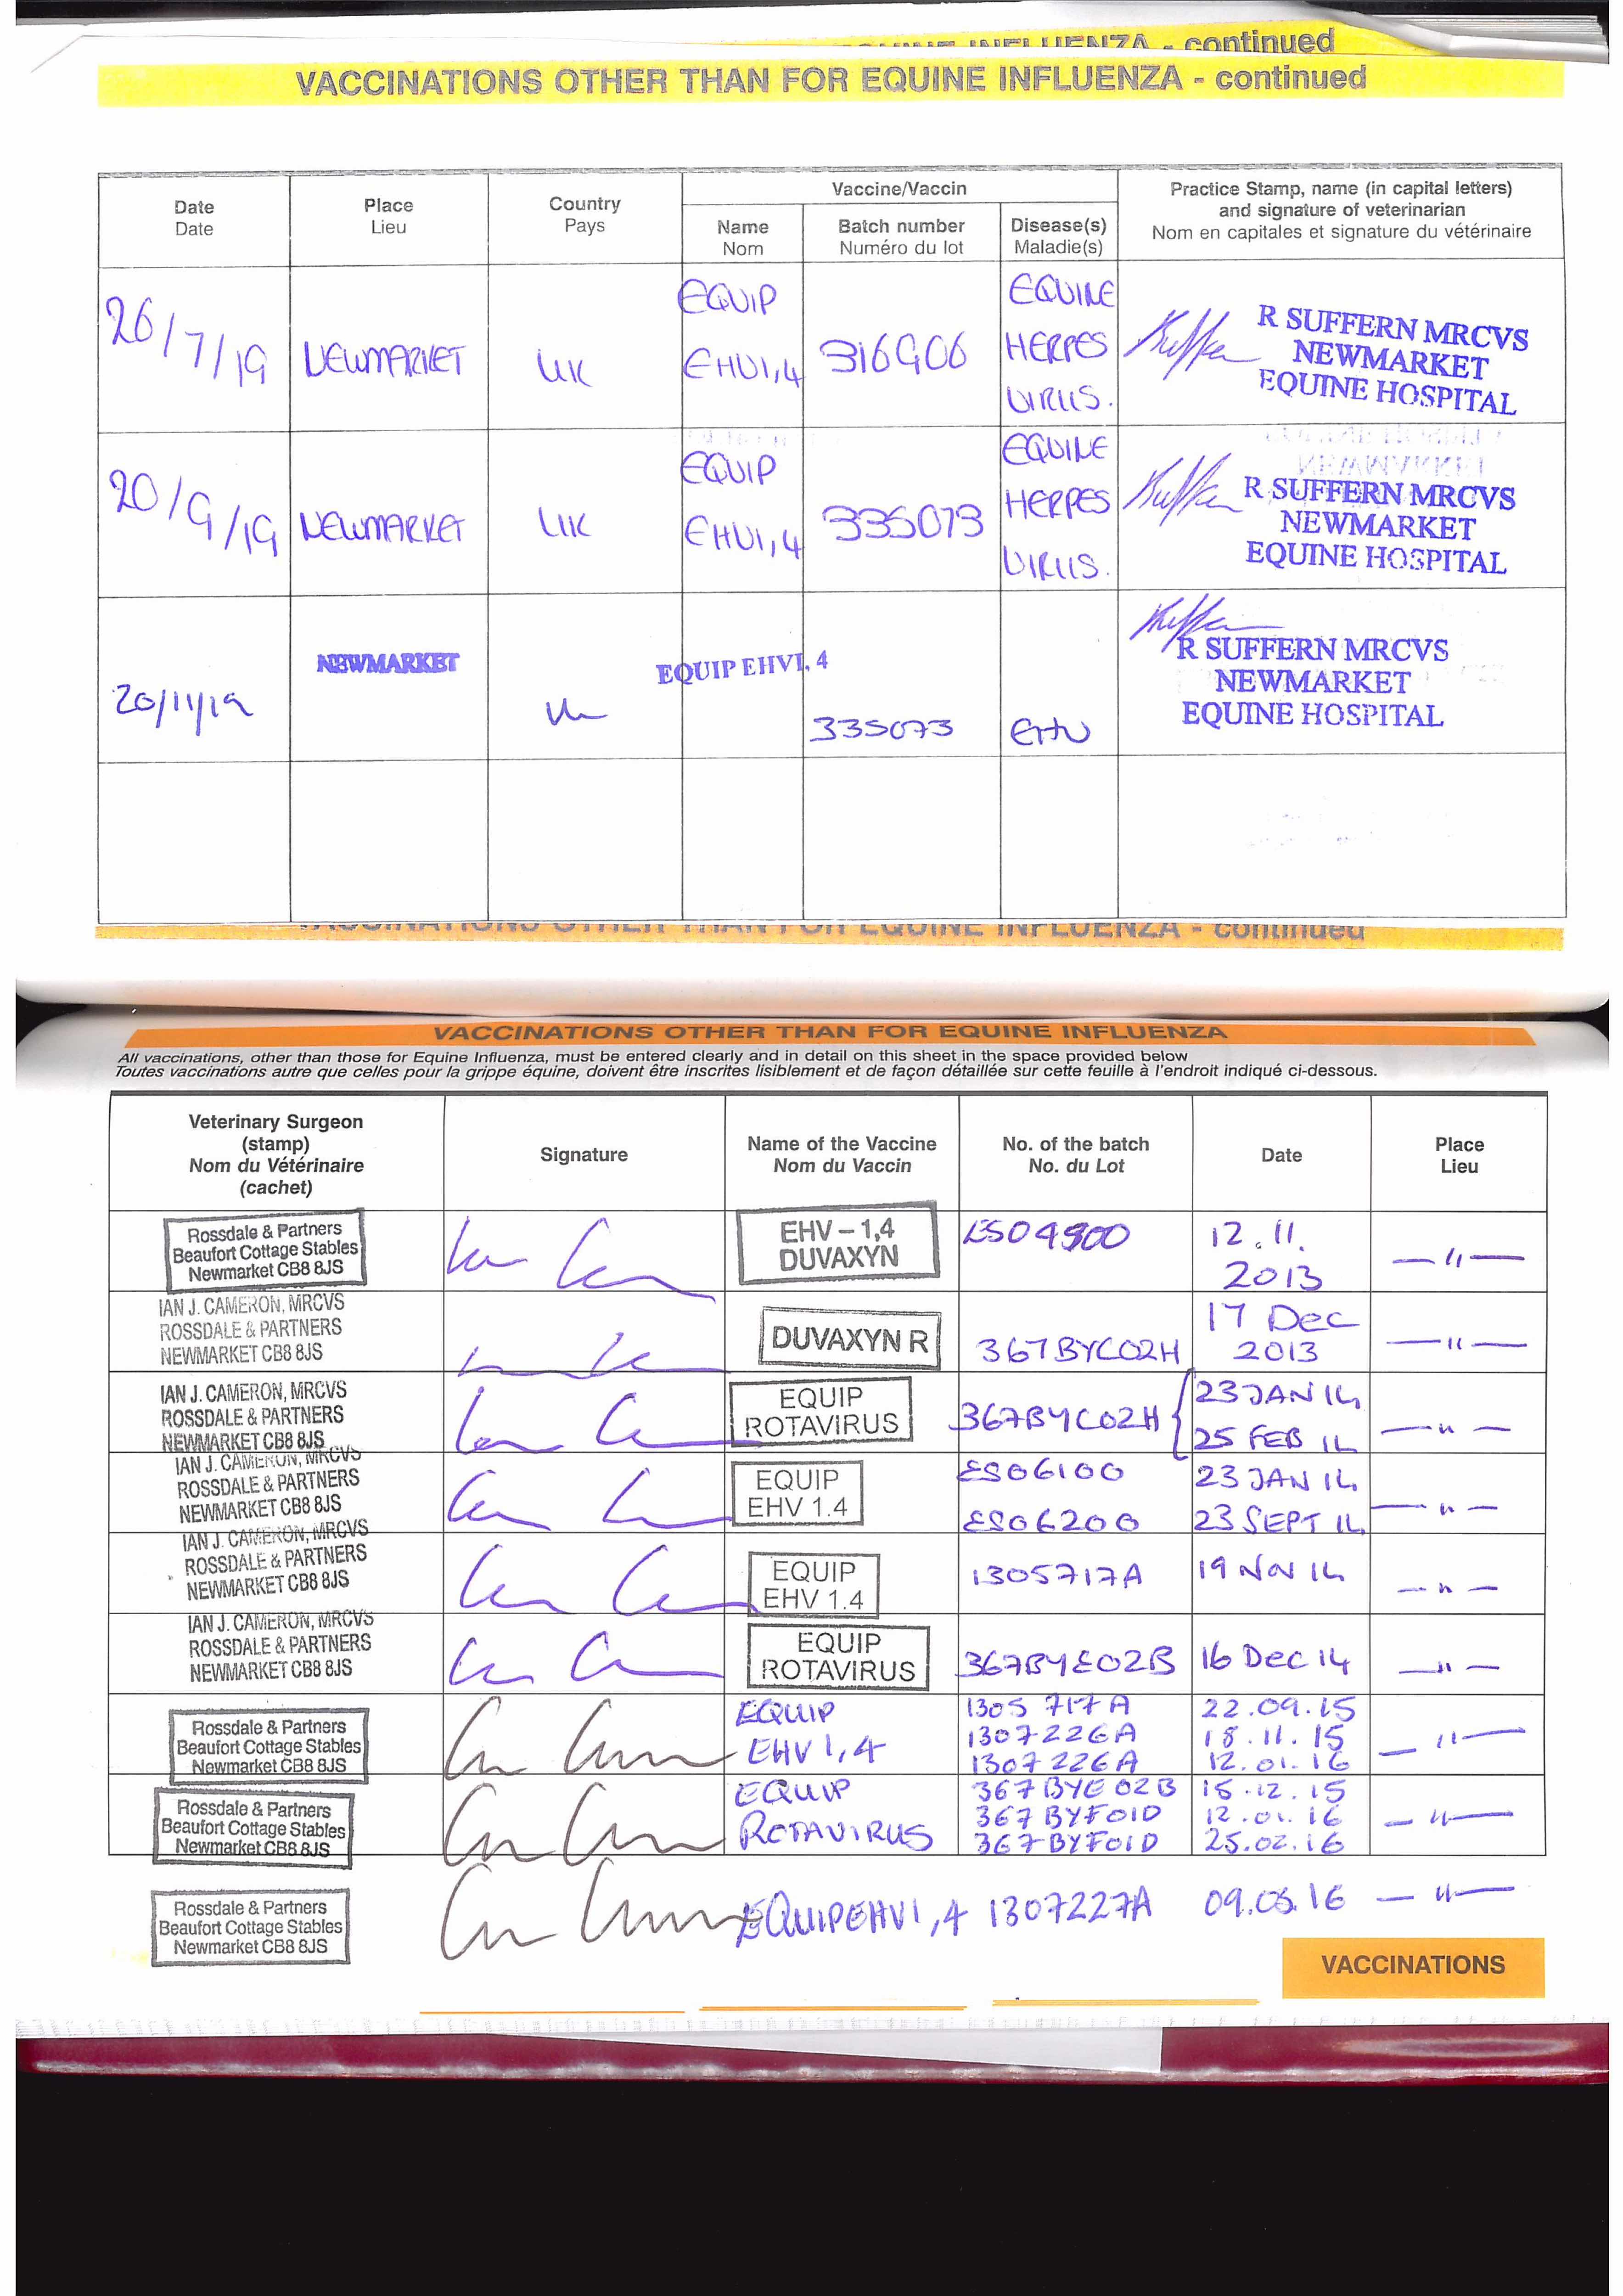 EQUINE INFLUENZA - continued
VACCINATIONS OTHER THAN FOR EQUINE INFLUENZA - continued
Date
Date
Place
Lieu
Country
Pays
Vaccine/Vaccin
Name
Nom
Batch number
Numéro du lot
Disease(s)
Maladie(s)
Practice Stamp, name (in capital letters)
and signature of veterinarian
Nom en capitales et signature du vétérinaire
26/7/19 NEWMARKET UK
EQUIP
EHV1,4
316906
EQUINE
HERPES
VIRUS.
R SUFFERN MRCVS
NEWMARKET
EQUINE HOSPITAL
20/9/19 NEWMARKET UK
EQUIP
EHV1,4
335073
EQUINE
HERPES
VIRUS.
R SUFFERN MRCVS
NEWMARKET
EQUINE HOSPITAL
20/11/19 NEWMARKET UK
EQUIP EHV1, 4
335073
EHV
R SUFFERN MRCVS
NEWMARKET
EQUINE HOSPITAL
VACCINATIONS OTHER THAN FOR EQUINE INFLUENZA - continued
VACCINATIONS OTHER THAN FOR EQUINE INFLUENZA
All vaccinations, other than those for Equine Influenza, must be entered clearly and in detail on this sheet in the space provided below
Toutes vaccinations autre que celles pour la grippe équine, doivent être inscrites lisiblement et de façon détaillée sur cette feuille à l'endroit indiqué ci-dessous.
Veterinary Surgeon
(stamp)
Nom du Vétérinaire
(cachet)
Signature
Name of the Vaccine
Nom du Vaccin
No. of the batch
No. du Lot
Date
Place
Lieu
Rossdale & Partners
Beaufort Cottage Stables
Newmarket CB8 8JS
EHV – 1,4
DUVAXYN
12.11.
2013
— " —
IAN J. CAMERON, MRCVS
ROSSDALE & PARTNERS
NEWMARKET CB8 8JS
DUVAXYN R
367BYC02H
17 Dec
2013
— " —
IAN J. CAMERON, MRCVS
ROSSDALE & PARTNERS
NEWMARKET CB8 8JS
EQUIP
ROTAVIRUS
367BYC02H
23 JAN 14
25 FEB 14
— " —
IAN J. CAMERON, MRCVS
ROSSDALE & PARTNERS
NEWMARKET CB8 8JS
EQUIP
EHV 1.4
ES06100
ES06200
23 JAN 14
23 SEPT 14
— " —
IAN J. CAMERON, MRCVS
ROSSDALE & PARTNERS
NEWMARKET CB8 8JS
EQUIP
EHV 1.4
1305717A
19 NOV 14
— " —
IAN J. CAMERON, MRCVS
ROSSDALE & PARTNERS
NEWMARKET CB8 8JS
EQUIP
ROTAVIRUS
367BYE02B
16 Dec 14
— " —
Rossdale & Partners
Beaufort Cottage Stables
Newmarket CB8 8JS
EQUIP
EHV 1,4
1305 717A 22.09.15
1307226A 18.11.15
1307226A 12.01.16
— " —
Rossdale & Partners
Beaufort Cottage Stables
Newmarket CB8 8JS
EQUIP
ROTAVIRUS
367BYE02B 15.12.15
367BYF01D 12.01.16
367BYF01D 25.02.16
— " —
Rossdale & Partners
Beaufort Cottage Stables
Newmarket CB8 8JS
EQUIPEHV1,4 1307227A
— " —
VACCINATIONS